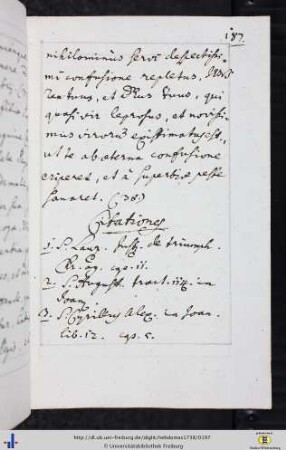 187.
nihilominus servi despectissi-
mi confusione repletus,
et Dñus tuus, qui
quasi vir leprosus, et novissi-
mus virorum existimatus est,
ut te ab aeterna confusione
eriperet, et à superbiae peste
sanaret. (38.)
Citationes
1. S. Laur. Just. de triumph.
Chr. ag. cap. 11.
2. S. August. tract. in
Joan.
3. S. Cyrillus Alex. in Joan.
lib. 12. cap.
http://dl.ub.uni-freiburg.de/diglit/hebdomas1738/0197
© Universitätsbibliothek Freiburg